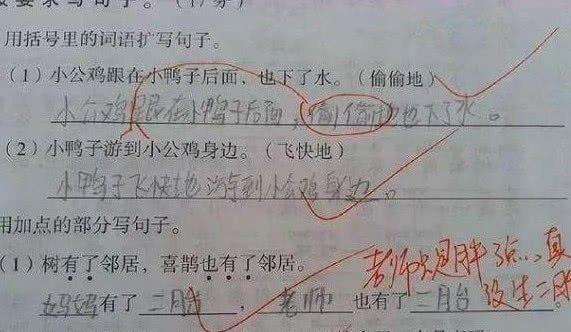 按要求写句子。(17分)
用括号里的词语扩写句子。
(1)小公鸡跟在小鸭子后面、也下了水。(偷偷地)
小公鸡跟在小鸭子后面,偷偷地也下了水。
(2)小鸭子游到小公鸡身边。(飞快地)
小鸭子飞快地游到小公鸡身边。
用加点的部分写句子。
(1)树有了邻居,喜鹊也有了邻居。
妈妈有了二月台,老师也有了二月台
老师只是胖了点…真
没生二胎